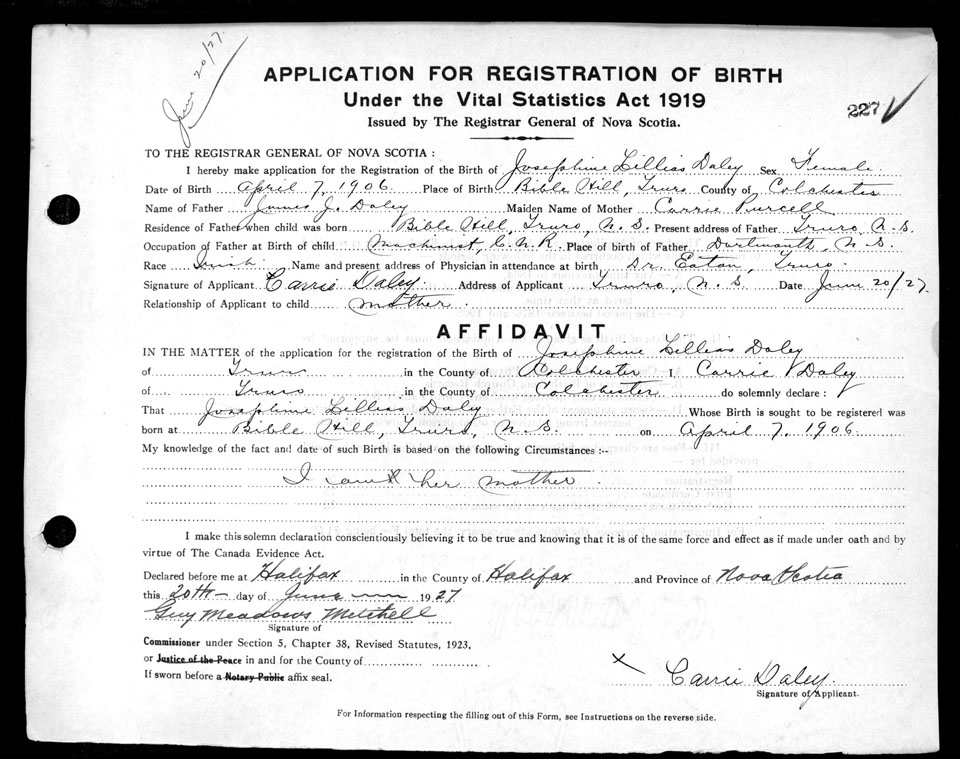 June 20/27.
APPLICATION FOR REGISTRATION OF BIRTH
Under the Vital Statistics Act 1919
227
Issued by The Registrar General of Nova Scotia.
TO THE REGISTRAR GENERAL OF NOVA SCOTIA :
I hereby make application for the Registration of the Birth of Josephine Lillias Daley Sex Female
Date of Birth April 7, 1906 Place of Birth Bible Hill, Truro County of Colchester
Name of Father James J. Daley Maiden Name of Mother Carrie Purcell
Residence of Father when child was born Bible Hill, Truro, N.S. Present address of Father Truro, N.S.
Occupation of Father at Birth of child Machinist, C.N.R. Place of birth of Father Dartmouth, N.S.
Race Irish Name and present address of Physician in attendance at birth Dr. Eaton, Truro.
Signature of Applicant Carrie Daley Address of Applicant Truro, N.S Date June 20/27.
Relationship of Applicant to child mother.
AFFIDAVIT
IN THE MATTER of the application for the registration of the Birth of Josephine Lillias Daley
of Truro in the County of Colchester I, Carrie Daley
of Truro in the County of Colchester do solemnly declare :
That Josephine Lillias Daley Whose Birth is sought to be registered was
born at Bible Hill, Truro, N.S. on April 7, 1906.
My knowledge of the fact and date of such Birth is based on the following Circumstances :--
I am her mother.
I make this solemn declaration conscientiously believing it to be true and knowing that it is of the same force and effect as if made under oath and by
virtue of The Canada Evidence Act.
Declared before me at Halifax in the County of Halifax and Province of Nova Scotia
this 20th day of June 1927
Guy Meadows Mitchell
Signature of
Commissioner under Section 5, Chapter 38, Revised Statutes, 1923,
or Justice of the Peace in and for the County of
If sworn before a Notary Public affix seal.
X Carrie Daley.
Signature of Applicant.
For Information respecting the filling out of this Form, see Instructions on the reverse side.